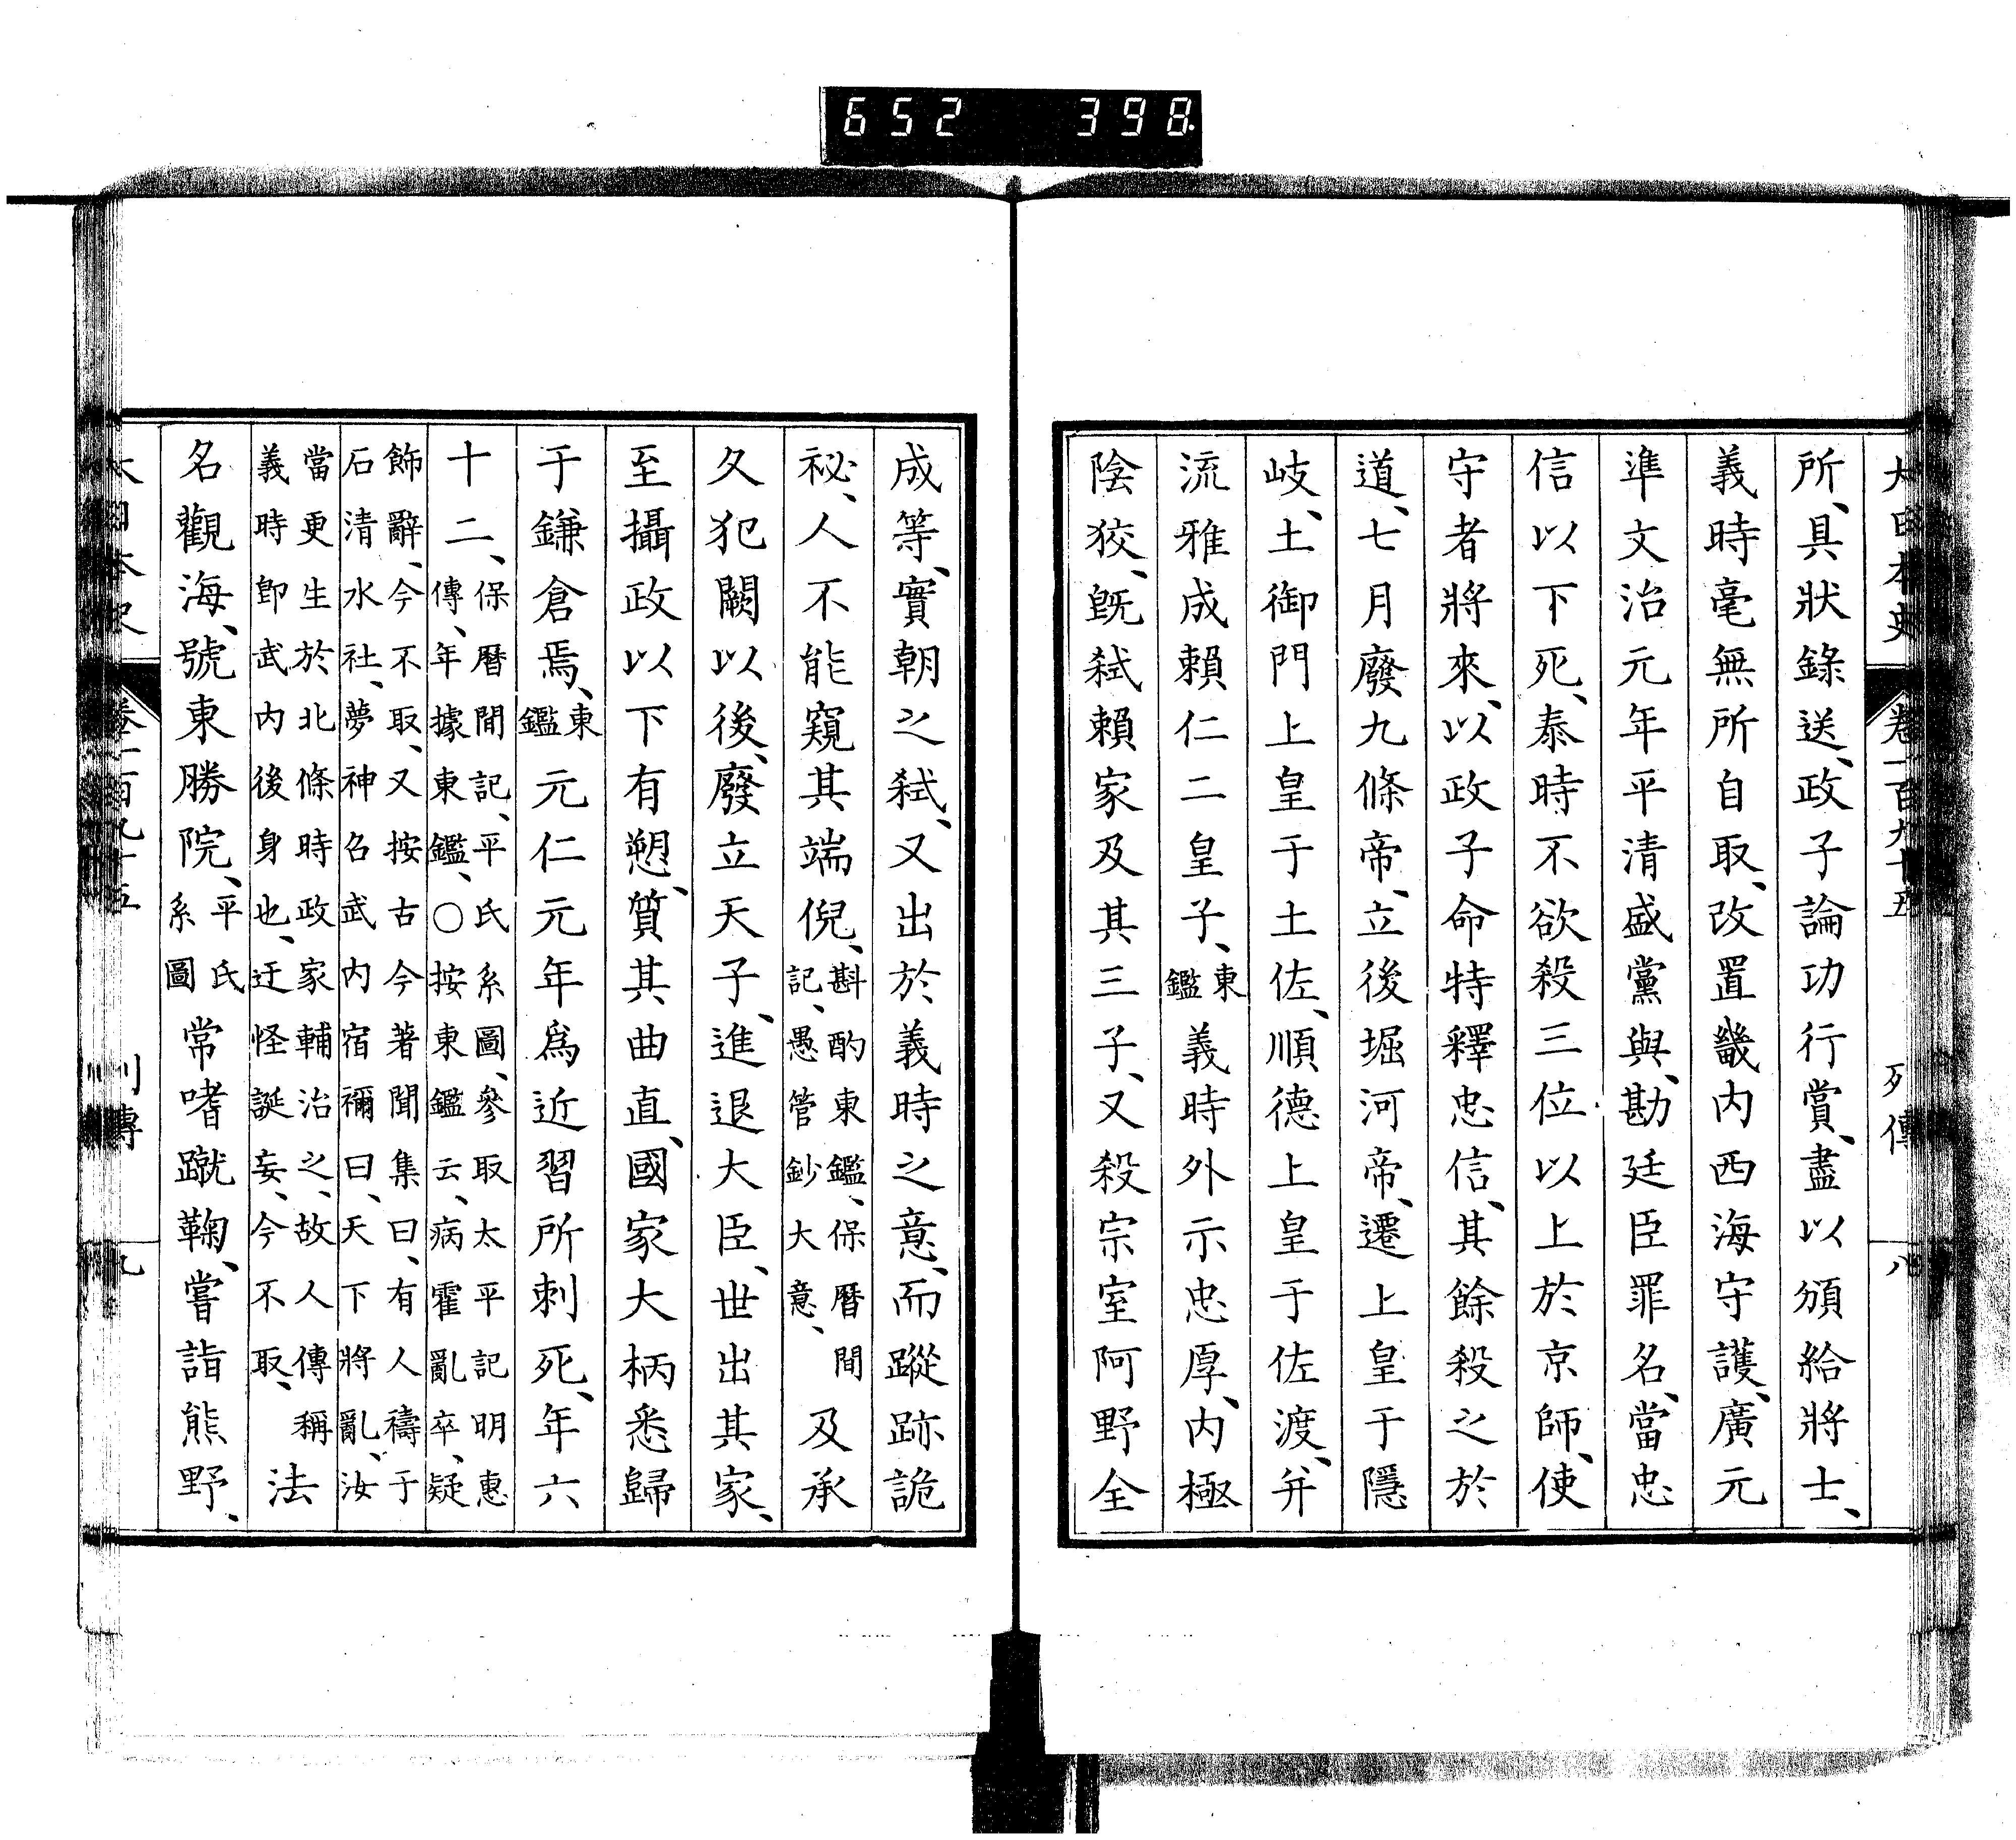 652 398
大日本史 卷一百九十五 列傳 八
所、具狀錄送、政子論功行賞、盡以頒給將士、
義時毫無所自取、改置畿內西海守護、廣元
準文治元年平清盛黨與、勘廷臣罪名、當忠
信以下死、泰時不欲殺三位以上於京師、使
守者將來、以政子命特釋忠信、其餘殺之於
道、七月廢九條帝、立後堀河帝、遷上皇于隱
岐、土御門上皇于土佐、順德上皇于佐渡、并
流雅成賴仁二皇子、東鑑義時外示忠厚、内極
陰狡、旣弑賴家及其三子、又殺宗室阿野全
成等、實朝之弑、又出於義時之意、而蹤跡詭
祕、人不能窺其端倪、斟酌東鑑、保曆間記、愚管鈔大意、及承
久犯闕以後、廢立天子、進退大臣、世出其家、
至攝政以下有愬、質其曲直、國家大柄悉歸
于鎌倉焉、東鑑元仁元年爲近習所刺死、年六
十二、保曆間記、平氏系圖、參取太平記明惠傳、年據東鑑、○按東鑑云、病霍亂卒、疑
飾辭、今不取、又按古今著聞集曰、有人禱于石清水社、夢神召武内宿禰曰、天下將亂、汝
當更生於北條時政家輔治之、故人傳稱義時卽武内後身也、迂怪誕妄、今不取、法
名觀海、號東勝院、平氏系圖常嗜蹴鞠、嘗詣熊野、
大日本史 卷一百九十五 列傳 九